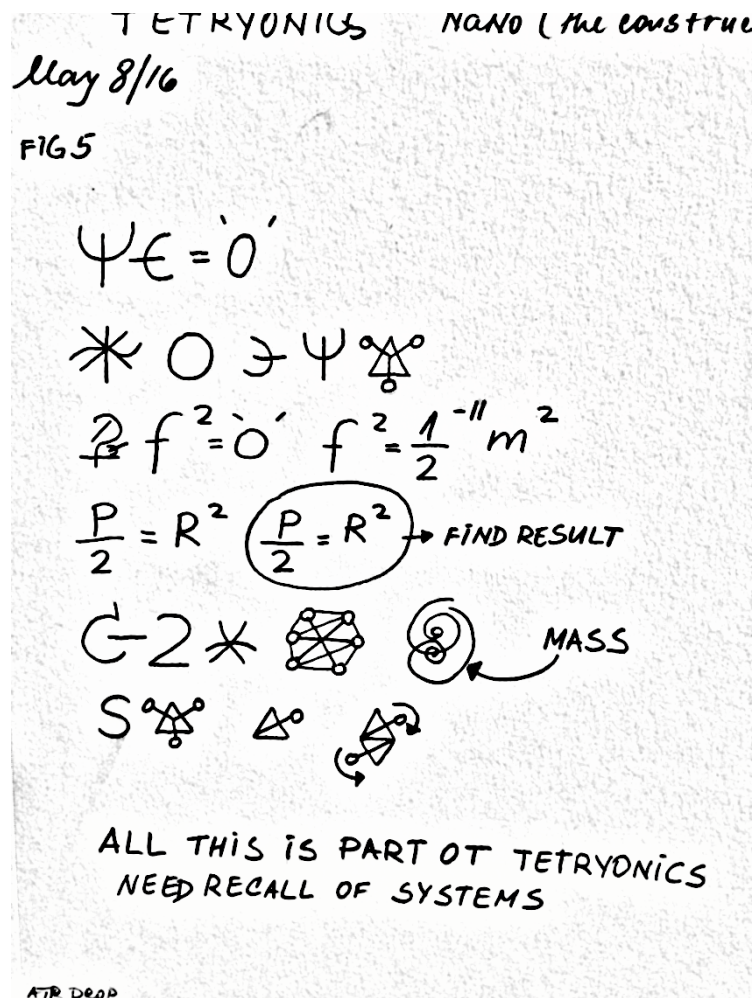 TETRYONICS NANO (the construc
May 8/16
FIG 5
Ψ∈ = 'O'
O Ψ
f² = 'O' f² = 1/2 ⁻¹¹ m²
P/2 = R² P/2 = R² → FIND RESULT
MASS
S
ALL THIS IS PART OT TETRYONICS
NEED RECALL OF SYSTEMS
AIR DROP